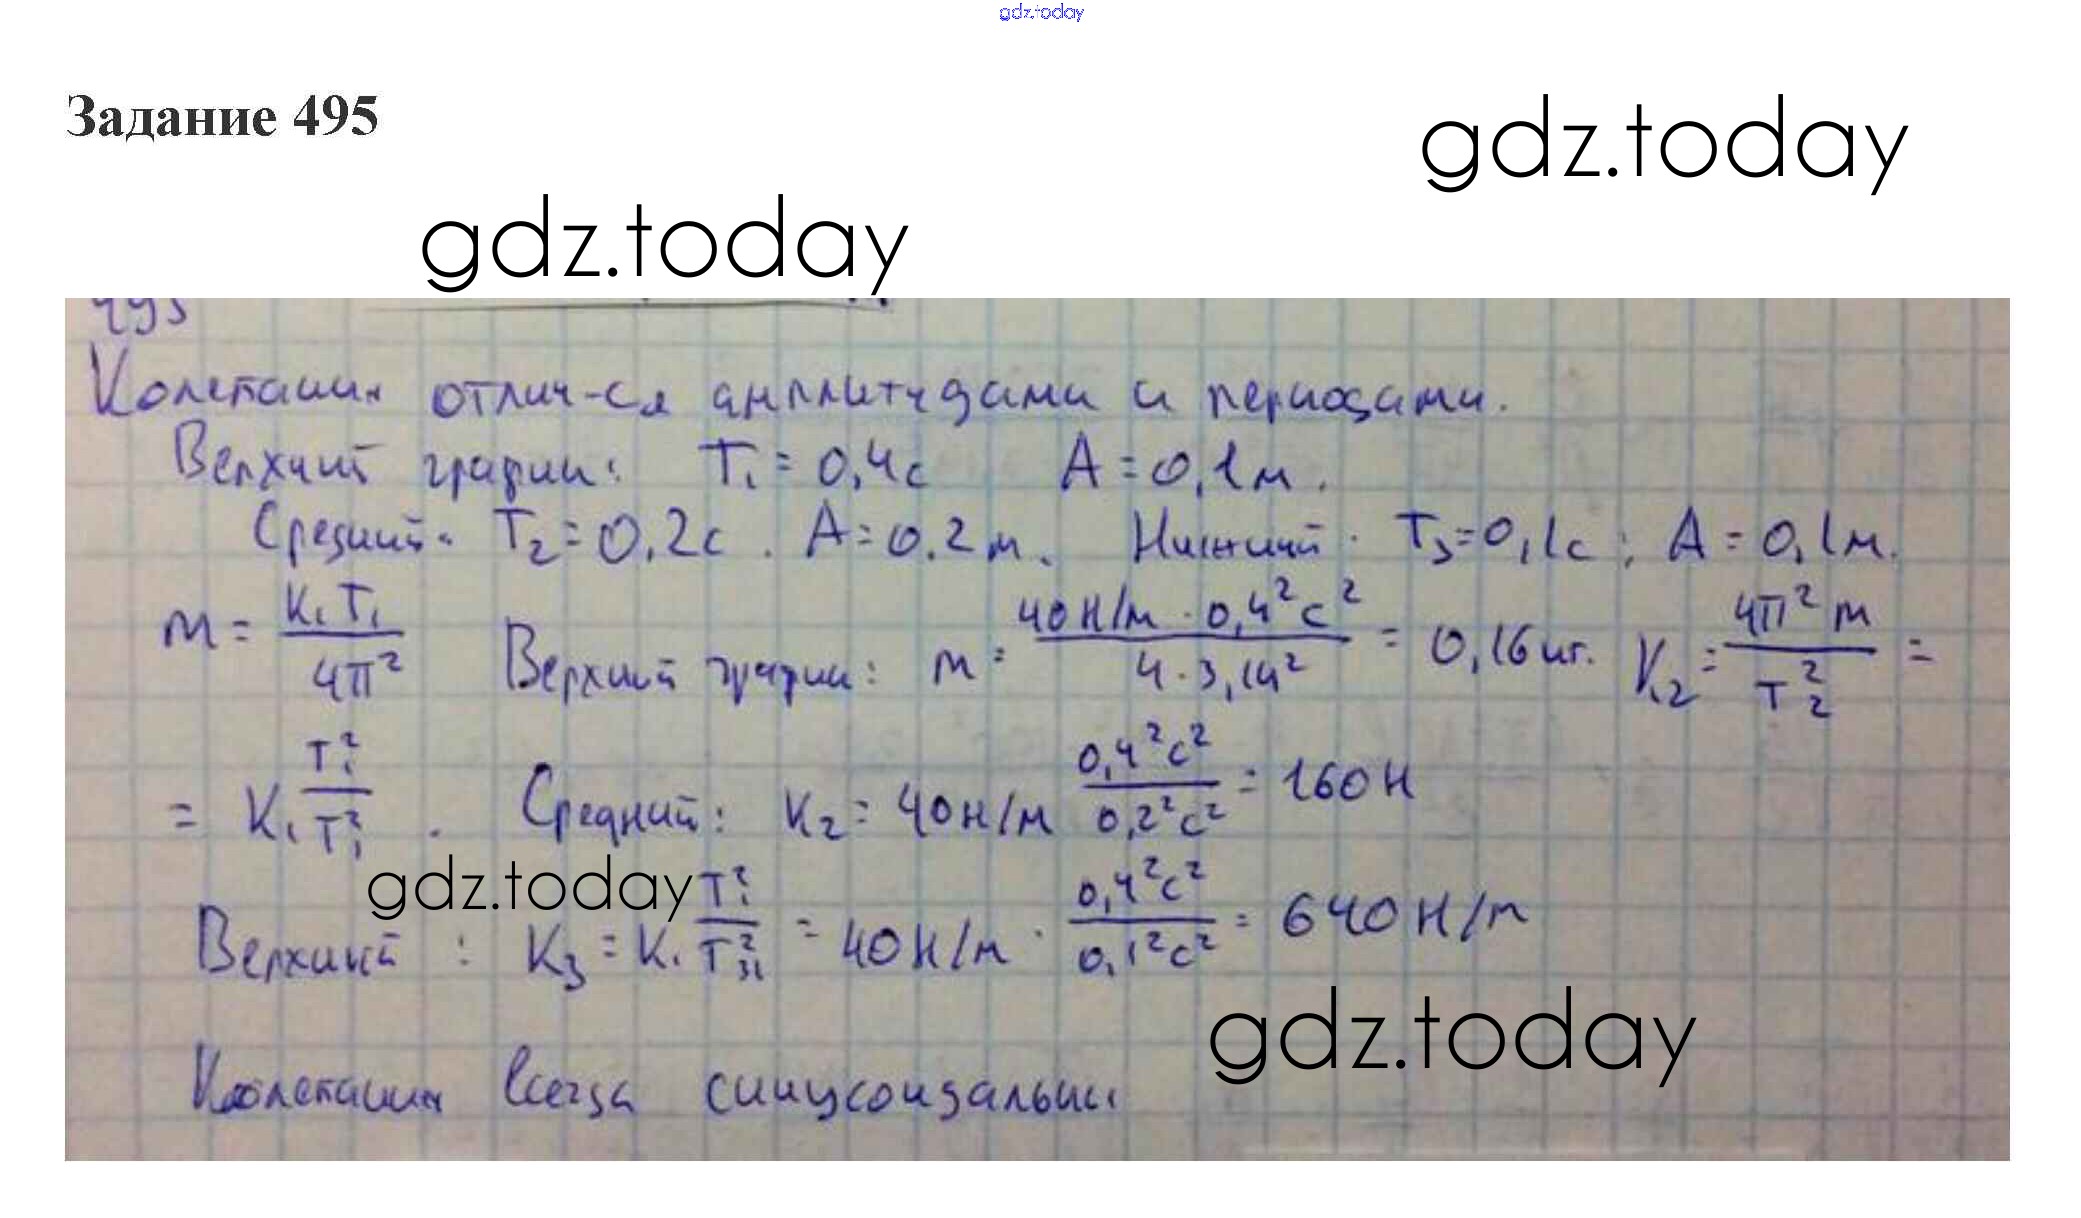 gdz.today
Задание 495
gdz.today
gdz.today
495
Колебания отлич-ся амплитудами и периодами.
Верхний график: T₁ = 0,4с A = 0,1м.
Средний: T₂ = 0,2с. A = 0.2м. Нижний: T₃ = 0,1с; A = 0,1м.
m = K₁T₁ / 4π² Верхний график: m = 40Н/м · 0,4²с² / 4 · 3,14² = 0,16кг. K₂ = 4π²m / T₂² =
= K₁ T₁² / T₁². Средний: K₂ = 40Н/м 0,4²с² / 0,2²с² = 160Н
gdz.today
Верхний: K₃ = K₁ T₁² / T₃² = 40Н/м · 0,4²с² / 0,1²с² = 640Н/м
gdz.today
Колебания всегда синусоидальны